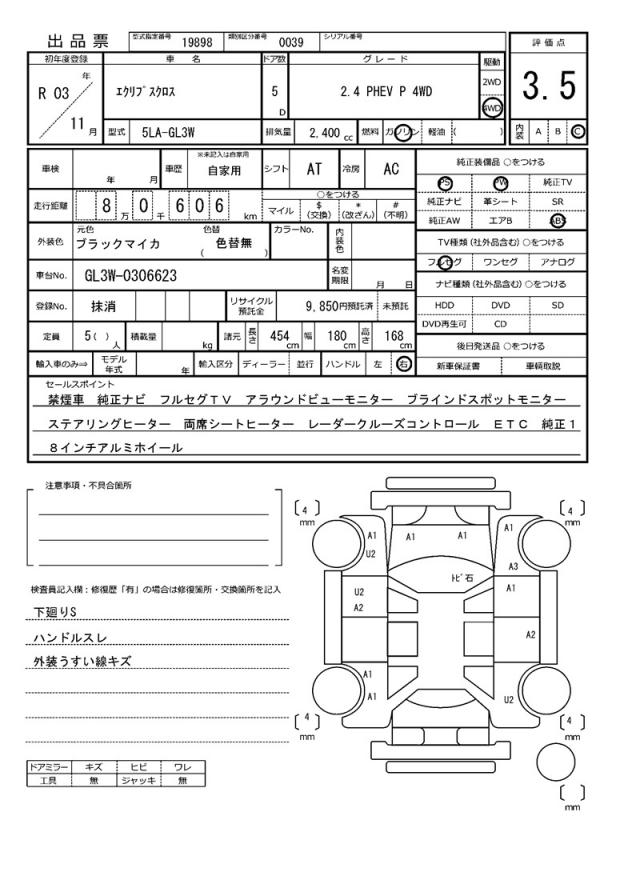 出品票 型式指定番号 19898 類別区分番号 0039 シリアル番号
評価点
3.5
初年度登録 車名 ドア数 グレード 駆動
R 03 年 11 月 エクリプスクロス 5 D 2.4 PHEV P 4WD 2WD 4WD
型式 5LA-GL3W 排気量 2,400 cc 燃料 ガソリン 軽油 ( )
内装 A B C
車検 年 月 車歴 ※未記入は自家用 自家用 シフト AT 冷房 AC
走行距離 8 万 0 千 6 0 6 km
○をつける
マイル $ (交換) * (改ざん) # (不明)
外装色 元色 ブラックマイカ 色替 ( 色替無 ) カラーNo. 内装色
車台No. GL3W-0306623 名変期限 月 日
登録No. 抹消 リサイクル預託金 9,850円預託済 未預託
定員 5 ( ) 人 積載量 kg 諸元 長さ 454 cm 幅 180 cm 高さ 168 cm
輸入車のみ⇒ モデル年式 年 輸入区分 ディーラー 並行 ハンドル 左 右
純正装備品 ○をつける
PS PW 純正TV
純正ナビ 革シート SR
純正AW エアB ABS
TV種類 (社外品含む) ○をつける
フルセグ ワンセグ アナログ
ナビ種類 (社外品含む) ○をつける
HDD DVD SD
DVD再生可 CD
後日発送品 ○をつける
新車保証書 車輌取説
セールスポイント
禁煙車 純正ナビ フルセグTV アラウンドビューモニター ブラインドスポットモニター
ステアリングヒーター 両席シートヒーター レーダークルーズコントロール ETC 純正1
8インチアルミホイール
注意事項・不具合箇所
検査員記入欄：修復歴「有」の場合は修復箇所・交換箇所を記入
下廻りS
ハンドルスレ
外装うすい線キズ
ドアミラー キズ ヒビ ワレ
工具 無 ジャッキ 無
4 mm
4 mm
A1 A1 A1 A1
U2
トビ石 A3
U2 A1
A2
A2
A1
A1 U2
4 mm
4 mm
mm